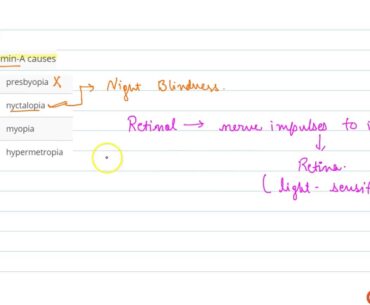 min-A causes
presbyopia X → Night Blindness.
nyctalopia
Retinal → nerve impulses to
myopia
hypermetropia
Retina.
(light-